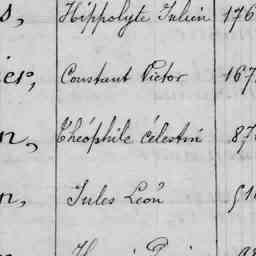 s, Hippolyte Julien 176
ier, Constant Victor 167
n, Théophile Célestin 87
n, Jules Léon 51